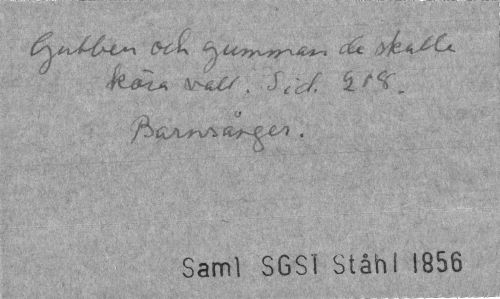 Gubben och gumman de skulle
köra vall. Sid. 218.
Barnsånger.
Saml SGS1 Ståhl 1856